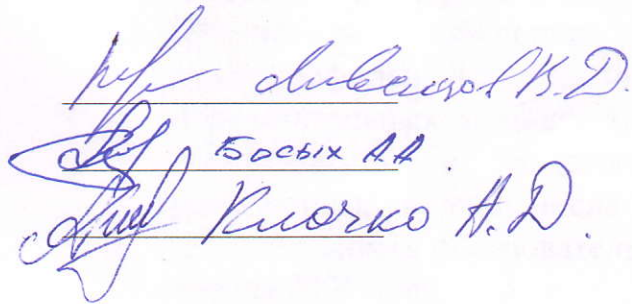 Ливенцов В.Д.
Босых А.А.
Клочко А.Д.